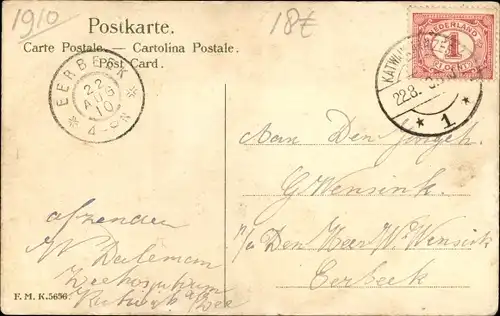 1910
18€
Postkarte.
Carte Postale. — Cartolina Postale.
Post Card.
NEDERLAND
1
CENT
EERBEEK
22
AUG
10
4-8N
KATWIJK
22.8.
1
Aan Den Jongeh.
G Wensink
p/a Den Heer W. Wensink
Eerbeek
afzender
W Daleman
Katwijk a/ Zee
F. M. K. 5656.